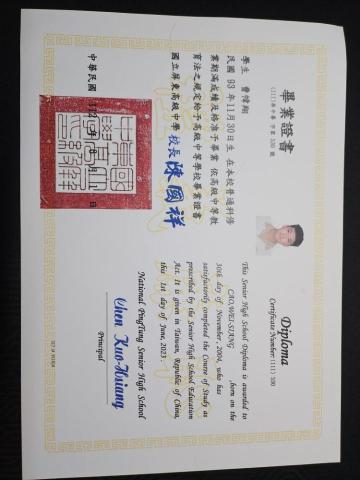 畢業證書
(111)屏中畢 字第 530 號
學生 曹幃翔
民國 93 年 11月 30日生 在本校普通科修
業期滿成績及格准予畢業 依高級中等教
育法之規定給予高級中等學校畢業證書
國立屏東高級中學 校長 陳國祥
中華民國 112 年 6 月 1 日
Diploma
Certificate Number: (111) 530
This Senior High School Diploma is awarded to
CAO,WEI-SIANG ,born on the
30th day of November, 2004, who has
satisfactorily completed the Course of Study as
prescribed by the Senior High School Education
Act. It is given in Taiwan, Republic of China,
this 1st day of June, 2023.
National PingTung Senior High School
Chen Kuo-Hsiang
Principal